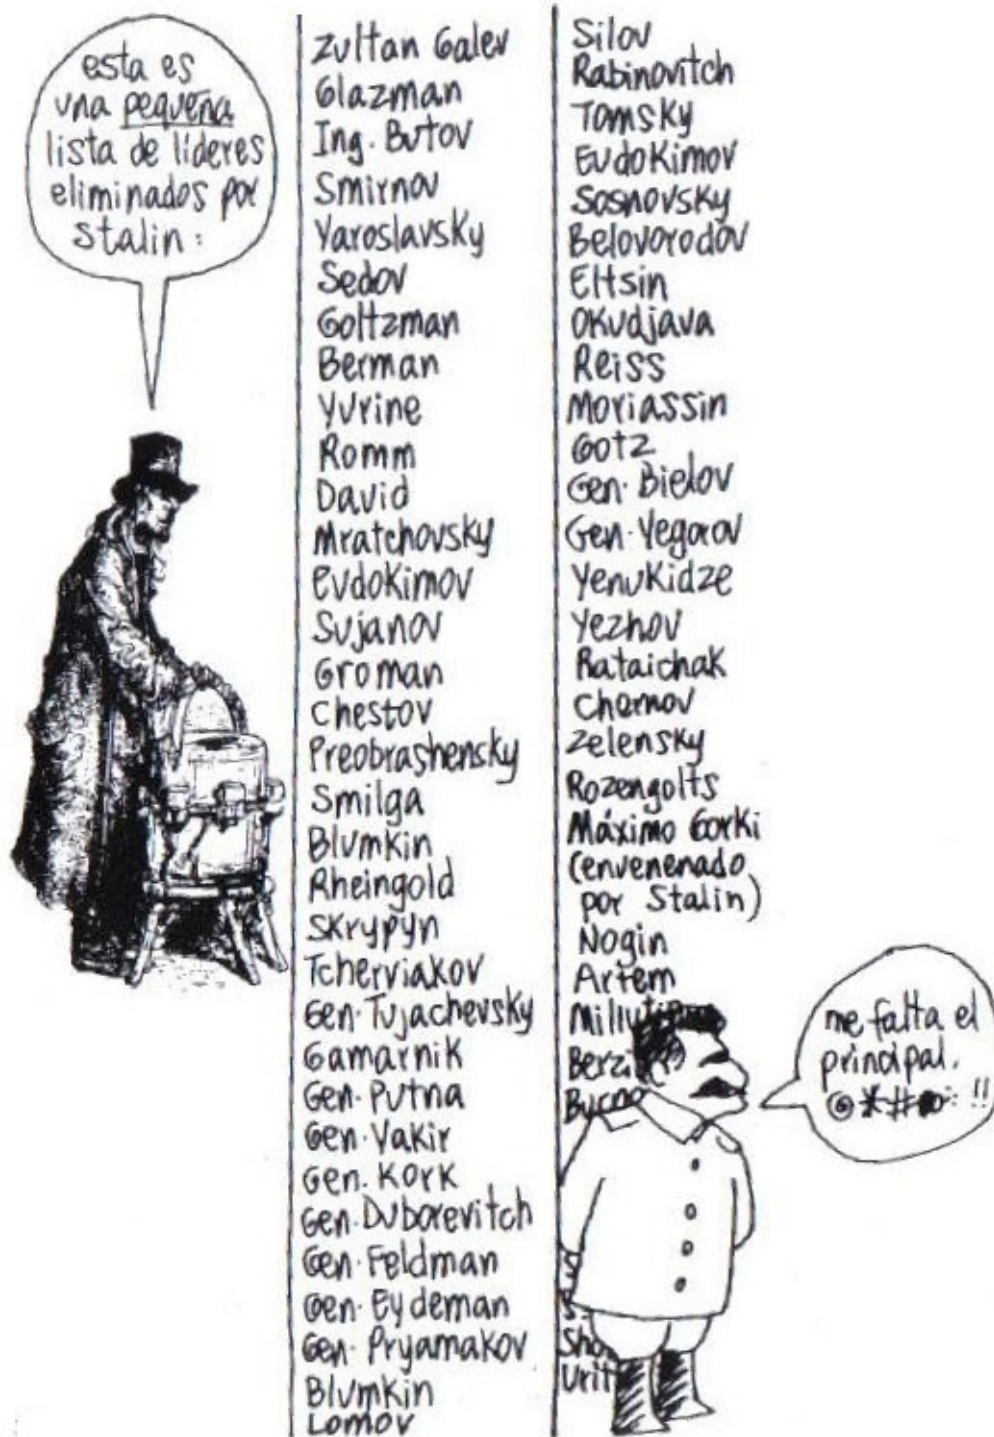 esta es
una pequeña
lista de líderes
eliminados por
Stalin:
Zultan Galev
Glazman
Ing. Butov
Smirnov
Yaroslavsky
Sedov
Goltzman
Berman
Yurine
Romm
David
Mratchovsky
Evdokimov
Sujanov
Groman
Chestov
Preobrashensky
Smilga
Blumkin
Rheingold
Skrypyn
Tcherviakov
Gen. Tujachevsky
Gamarnik
Gen. Putna
Gen. Yakir
Gen. Kork
Gen. Duborevitch
Gen. Feldman
Gen. Eydeman
Gen. Pryamakov
Blumkin
Lomov
Silov
Rabinovitch
Tomsky
Evdokimov
Sosnovsky
Belovorodov
Eltsin
Okudjava
Reiss
Moriassin
Gotz
Gen. Bielov
Gen. Yegorov
Yenukidze
Yezhov
Rataichak
Chernov
Zelensky
Rozengolts
Máximo Gorki
(envenenado
por Stalin)
Nogin
Artem
me falta el
principal.
@*#●÷!!